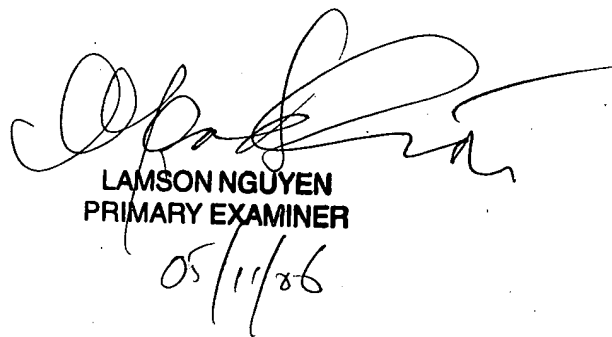 LAMSON NGUYEN
PRIMARY EXAMINER
05/11/06